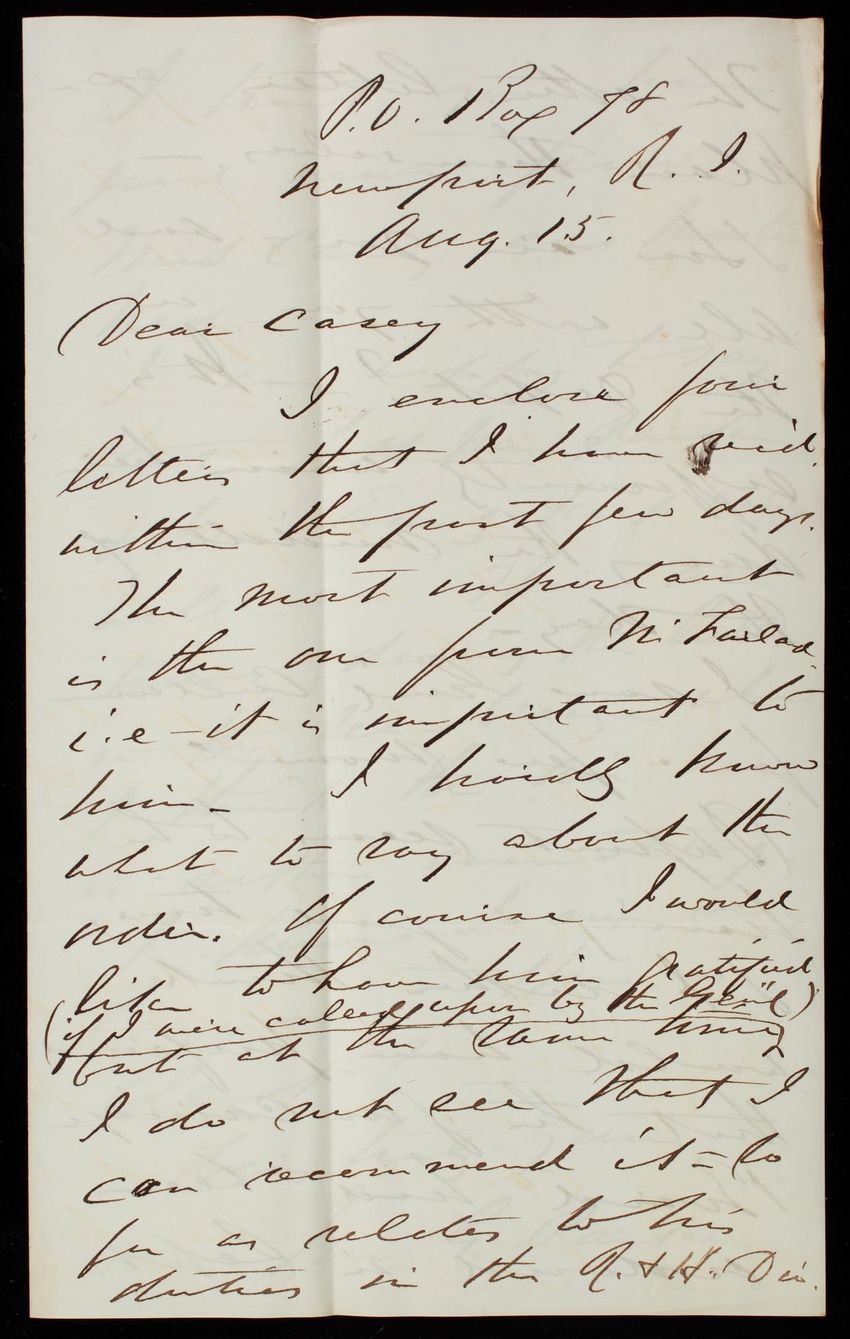 P.O. Box 78
Newport, R. I.
Aug. 15.
Dear Casey
I enclose four
letters that I have rec'd.
within the past few days.
The most important
is the one from McFarland
i.e - it is important to
him - I hardly know
what to say about the
order. Of course I would
like to have him gratified
(if I were called upon by the Gen'l)
but at the same time
I do not see that I
can recommend it - so
far as relates to his
duties in the R. & H. Div.